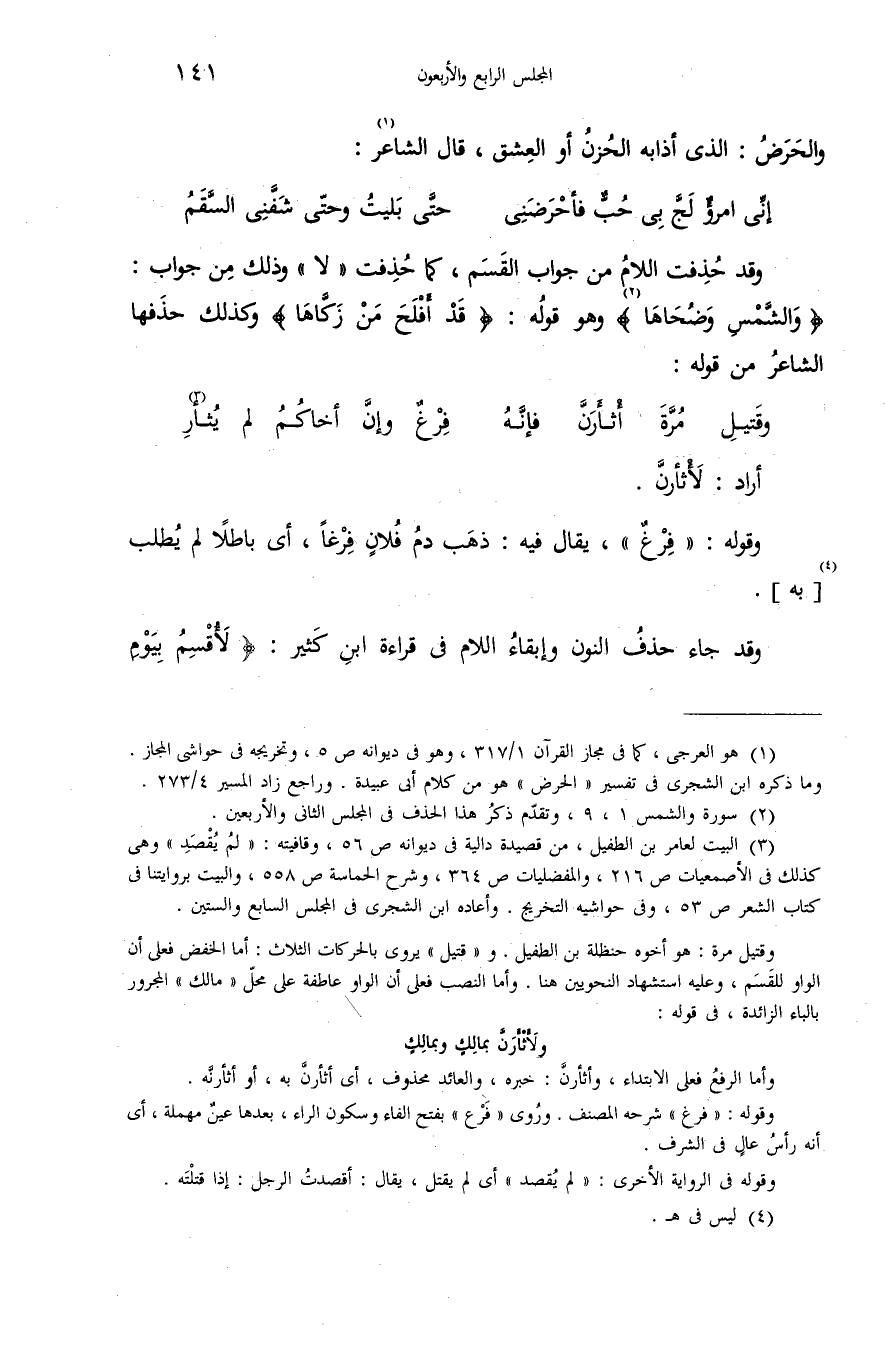 المجلس الرابع والأربعون ١٤١
والحَرَضُ : الذى أذابه الحُزنُ أو العِشق ، قال الشاعر(١) :
إنِّى امرؤٌ لَجَّ بِى حُبٌّ فأحْرَضَنِى حتَّى بَليتُ وحتّى شَفَّنِى السَّقَمُ
وقد حُذِفت اللامُ من جواب القَسَم ، كما حُذِفت « لا » وذلك مِن جواب :
﴿ وَالشَّمْسِ وَضُحَاهَا ﴾(٢) وهو قولُه : ﴿ قَدْ أَفْلَحَ مَنْ زَكَّاهَا ﴾ وكذلك حذَفها
الشاعرُ من قوله :
وقَتيـلِ مُرَّةَ أَثـأَرَنَّ فإنَّـهُ فِرْغٌ وإنَّ أخاكـمُ لم يُثـأَرِ(٣)
أراد : لَأَثأرنَّ .
وقوله : « فِرْغٌ » ، يقال فيه : ذهَب دمُ فُلانٍ فِرْغاً ، أى باطلًا لم يُطلب
[ به ](٤) .
وقد جاء حذفُ النون وإبقاءُ اللام فى قراءة ابنِ كَثير : ﴿ لَأُقْسِمُ بِيَوْمِ
(١) هو العرجى ، كما فى مجاز القرآن ٣١٧/١ ، وهو فى ديوانه ص ٥ ، وتخريجه فى حواشى المجاز .
وما ذكره ابن الشجرى فى تفسير « الحرض » هو من كلام أبى عبيدة . وراجع زاد المسير ٢٧٣/٤ .
(٢) سورة والشمس ١ ، ٩ ، وتقدّم ذكرُ هذا الحذف فى المجلس الثانى والأربعين .
(٣) البيت لعامر بن الطفيل ، من قصيدة دالية فى ديوانه ص ٥٦ ، وقافيته : « لمُ يُقْصَدِ » وهى
كذلك فى الأصمعيات ص ٢١٦ ، والمفضليات ص ٣٦٤ ، وشرح الحماسة ص ٥٥٨ ، والبيت بروايتنا فى
كتاب الشعر ص ٥٣ ، وفى حواشيه التخريج . وأعاده ابن الشجرى فى المجلس السابع والستين .
وقتيل مرة : هو أخوه حنظلة بن الطفيل . و « قتيل » يروى بالحركات الثلاث : أما الخفض فعلى أن
الواو للقَسَم ، وعليه استشهاد النحويين هنا . وأما النصب فعلى أن الواو عاطفة على محلّ « مالك » المجرور
بالباء الزائدة ، فى قوله :
ولَأثْأرَنَّ بمالِكٍ وبمالِكٍ
وأما الرفعُ فعلى الابتداء ، وأثأرنَّ : خبره ، والعائد محذوف ، أى أثأرنَّ به ، أو أثأرنَّه .
وقوله : « فرغ » شرحه المصنف . ورُوى « فَرْع » بفتح الفاء وسكون الراء ، بعدها عينٌ مهملة ، أى
أنه رأسُ عالٍ فى الشرف .
وقوله فى الرواية الأخرى : « لم يُقصد » أى لم يقتل ، يقال : أقصدتُ الرجل : إذا قتلْتَه .
(٤) ليس فى هـ .